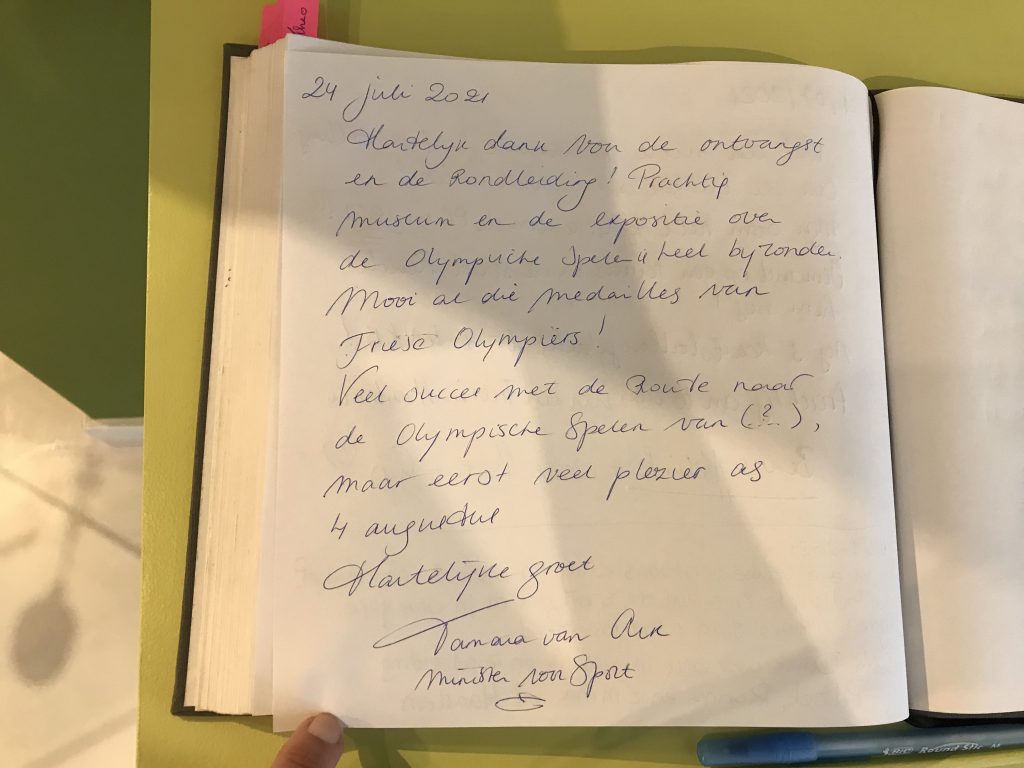 theo
24 juli 2021
Hartelijk dank voor de ontvangst
en de Rondleiding! Prachtig
museum en de expositie over
de Olympische Spelen is heel bijzonder.
Mooi al die medailles van
Friese Olympiërs!
Veel succes met de Route naar
de Olympische Spelen van (?),
maar eerst veel plezier as
4 augustus
Hartelijke groet
Tamara van Ark
minister voor Sport
BIC Round Stic M